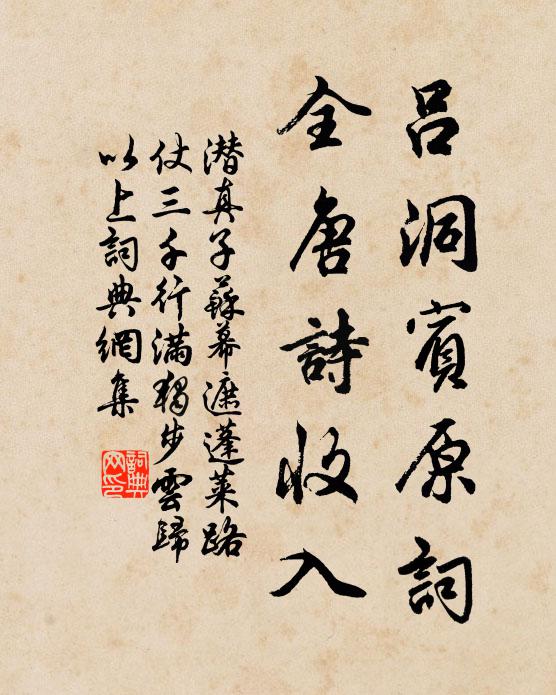 吕洞賓原詞
全唐詩收入
潜真子蘇幕遮蓬莱路
仗三千行滿獨步雲歸
以上詞典網集
詞典
网印